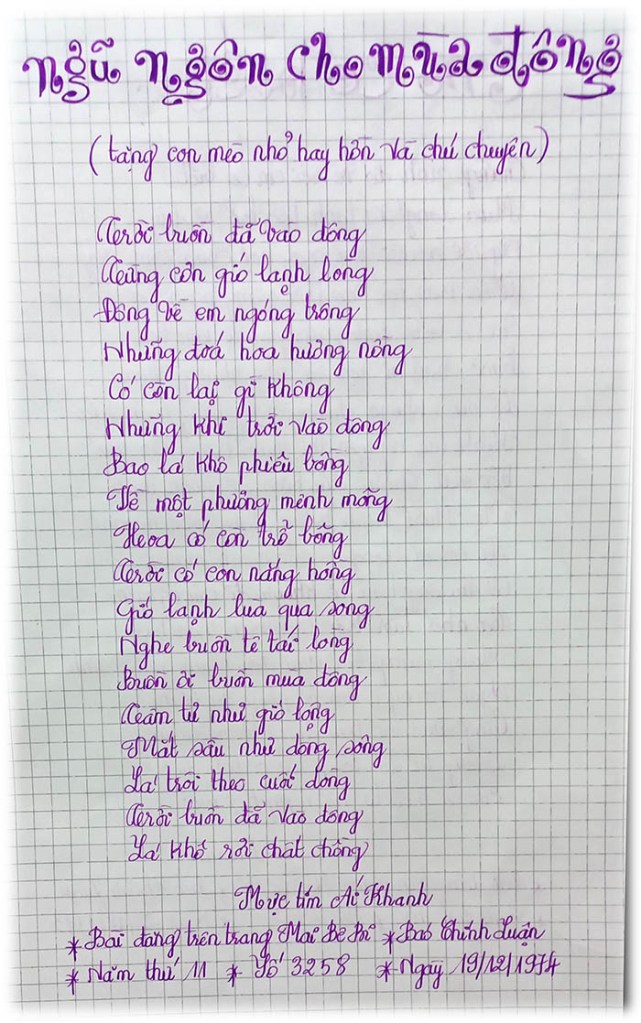 ngũ ngôn cho mùa đông
(tặng con mèo nhỏ hay hờn và chú chuyên)
Trời buồn đã vào đông
Từng cơn gió lạnh lòng
Đông về em ngóng trông
Những đoá hoa hướng nồng
Có còn lại gì không
Những khi trời vào đông
Bao lá khô phiêu bồng
Về một phương mênh mông
Hoa có còn trổ bông
Trời có còn nắng hồng
Gió lạnh lùa qua song
Nghe buồn tê tái lòng
Buồn ơi buồn mùa đông
Tâm tư như gió lộng
Mắt sâu như dòng sông
Lá trôi theo cuối dòng
Trời buồn đã vào đông
Lá khô rơi chất chồng
Mực tím Ái Khanh
* Bài đăng trên trang Mai Bê Bi * Báo Chính Luận
* Năm thứ 11 * Số 3258 * Ngày 19/12/1974